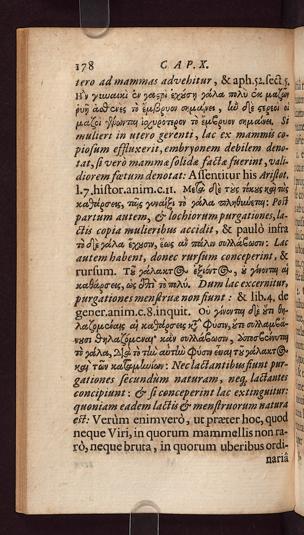 178 CAP. X.
tero ad mammas advehitur, & aph. 52. sect. 5.
Ἢν γυναικὶ ἐν γαστρὶ ἐχούσῃ γάλα πολὺ ἐκ μαζῶν
ῥυῇ ἀσθενὲς τὸ ἔμβρυον σημαίνει, ἢν δὲ στερεοὶ οἱ
μαζοὶ ὑγιεινότερον τὸ ἔμβρυον σημαίνει. Si
mulieri in utero gerenti, lac ex mammis co-
piosum effluxerit, embryonem debilem deno-
tat, si verò mammæ solidæ factæ fuerint, vali-
diorem fœtum denotat: Assentitur his Aristot.
l. 7. histor. anim. c. 11. Μετὰ δὲ τοὺς τόκους καὶ τὰς
καθάρσεις, ταῖς γυναιξὶ τὸ γάλα πληθύεται: Post
partum autem, & lochiorum purgationes, la-
ctis copia mulieribus accidit, & paulò infra
τὸ δὲ γάλα ἔχουσιν, ἕως ἂν πάλιν συλλάβωσιν: Lac
autem habent, donec rursum conceperint, &
rursum. Τοῦ γάλακτος ἐξιόντος, οὐ γίνονται αἱ
καθάρσεις, ὡς ἐπὶ τὸ πολύ. Dum lac excernitur,
purgationes menstruæ non fiunt: & lib. 4. de
gener. anim. c. 8. inquit. Οὐ γίνονται δὲ οὔτε θη-
λαζομέναις αἱ καθάρσεις κτ' φύσιν, οὔτε συλλαμβά-
νουσι θηλαζόμεναι κἂν συλλάβωσιν, ἀποσβέννυται
τὸ γάλα, Διὰ τὸ τὴν αὐτὴν φύσιν εἶναι τοῦ γάλακτος
καὶ τῶν καταμηνίων: Nec lactantibus fiunt pur-
gationes secundum naturam, neq; lactantes
concipiunt: & si conceperint lac extinguitur:
quoniam eadem lactis & menstruorum natura
est: Verùm enimverò, ut præter hoc, quod
neque Viri, in quorum mammellis non ra-
rò, neque bruta, in quorum uberibus ordi-
nariâ